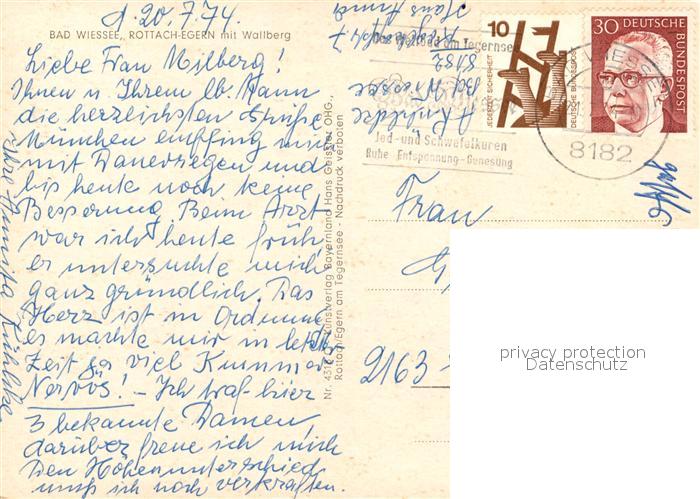 d. 20.7.74.
BAD WIESSEE, ROTTACH-EGERN mit Wallberg
Liebe Frau Milberg!
Ihnen u Ihrem lb. Mann
die herzlichsten Grüße
München empfing mich
mit Dauerregen und
bis heute noch keine
Besserung. Beim Arzt
war ich heute früh,
er untersuchte mich
ganz gründlich. Das
Herz ist in Ordnung
es machte mir in letzter
Zeit so viel Kummer
Nervös! – Ich traf hier
3 bekannte Damen,
darüber freue ich mich
Den Höhenunterschied
muß ich noch verkraften.
Nr. 431 Kunstverlag Bayernland Hans Geissler OHG.,
Rottach/Egern am Tegernsee - Nachdruck verboten
8182
Bad Wiessee
am Tegernsee
Jod- und Schwefelkuren
Ruhe - Entspannung - Genesung
10
JEDERZEIT SICHERHEIT
DEUTSCHE BUNDESPOST
30 DEUTSCHE
BUNDESPOST
8182
Frau
2163
privacy protection
Datenschutz